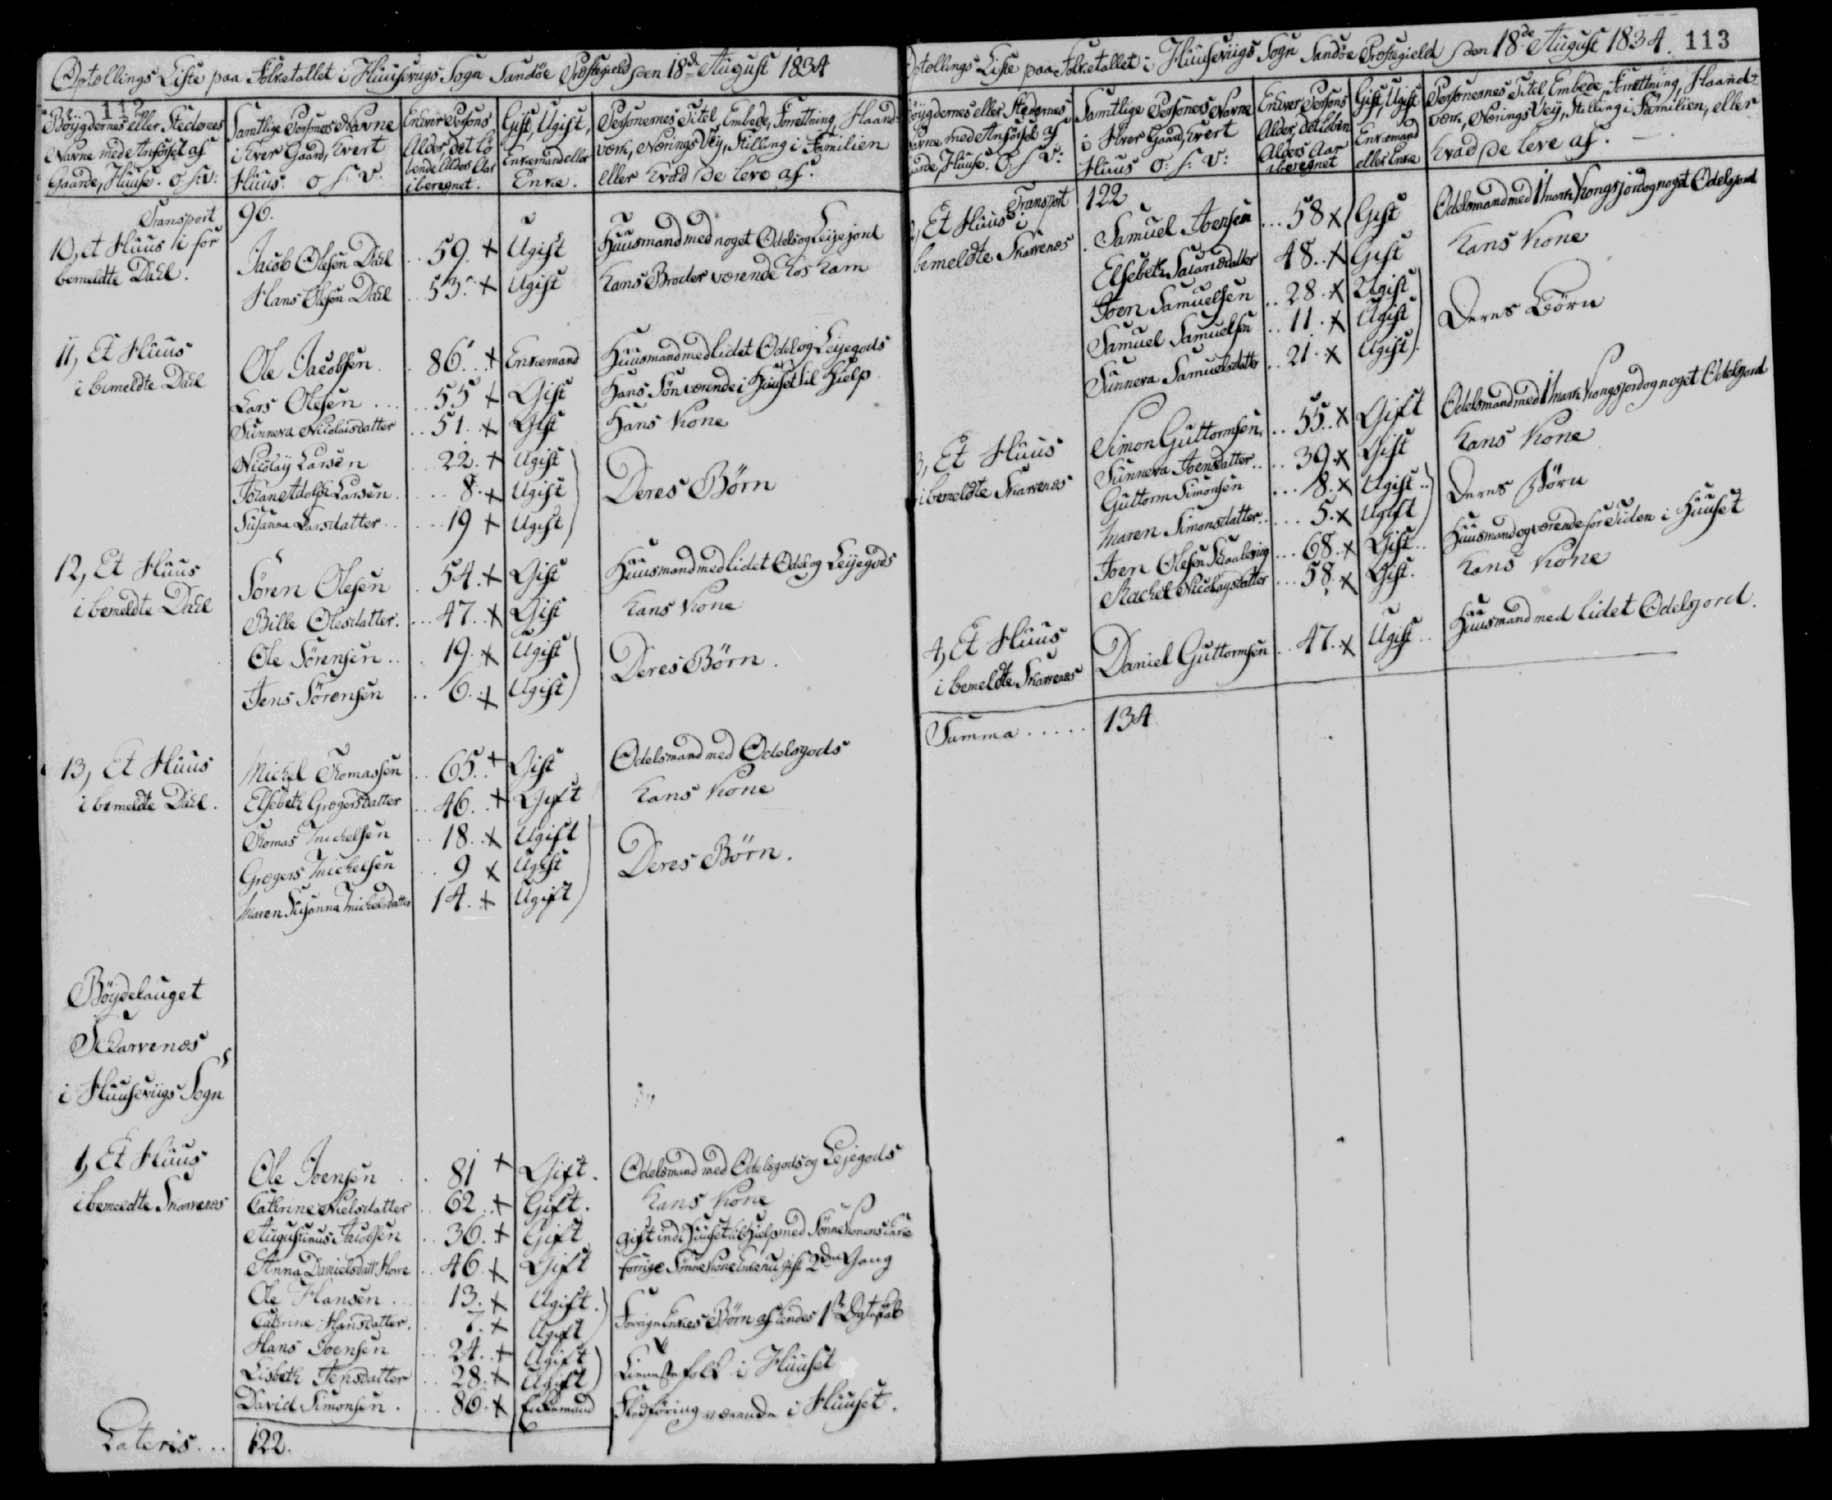 Optællings Liste paa Folketallet i Huusevigs Sogn Sandøe Præstegield den 18de August 1834
112
Böygdernes eller Stedernes
Navne med Anförsel af
Gaarde, Huuse. O. S. V:
Samtlige Personers Navne
i hver Gaard, hvert
Huus O. S. V.
Enhver Persons
Alder, det lö-
bende Alders Aar
iberegnet.
Gift, Ugift,
Enkemand eller
Enke.
Personernes Titel, Embede, Forretning, Haand-
værk, Nærings Vey, Stilling i Familien
eller hvad de leve af.
Transport 96.
10, et Huus i for Jacob Olesen Dahl 59. + Ugift Huusmand med noget Odels og Leyejord
bemeldte Dahl. Hans Olesen Dahl 53. + Ugift hans Broder værende hos ham
11, Et Huus Ole Jacobsen 86. + Enkemand Huusmand med lidet Odel og Leyegods
i bemeldte Dahl Lars Olesen 55 + Gift hans Sön værende i Huuset til Hielp
Sunneva Nicolaisdatter 51. + Gift Hans Kone
Nicolaÿ Larsen 22. + Ugift
Johan Adolph Larsen 8. + Ugift Deres Börn
Susanna Larsdatter 19 + Ugift
12, Et Huus Sören Olesen 54. + Gift Huusmand med lidet Odel og Leyegods
i bemeldte Dahl Bille Olesdatter. 47. + Gift hans Kone
Ole Sörensen 19. + Ugift Deres Börn.
Jens Sörensen 6. + Ugift
13, Et Huus Michel Thomassen 65. + Gift Odelsmand med Odelsgods
i bemeldte Dahl. Elsebeth Grøgersdatter 46. + Gift hans Kone
Thomas Michelsen 18. + Ugift
Grøgers Michelsen 9 + Ugift Deres Börn.
Maren Susanna Michelsdatter 14. + Ugift
Böydelauget
Skarvenæs
i Huusevigs Sogn
1, Et Huus Ole Joensen 81 + Gift. Odelsmand med Odelsgods og Lejegods
i bemeldte Skarvenæs Cathrine Nielsdatter 62. + Gift. hans Kone
Augustinus Jacobsen 36. + Gift gift ind i Huuset til Hielp med Sönne Konens
Anna Danielsdatt 46. + Gift forrige Sönne Kone Enke nu gift 2den Gang
Ole Hansen 13. + Ugift.
Catrine Hansdatter. 7. + Ugift Forrige Enkes Börn af hendes 1ste Egteskab
Hans Joensen 24. + Ugift
Lisbeth Jensdatter 28. + Ugift Tieneste folk i Huuset
David Simonsen. 86. + Enkemand Fledföring værende i Huuset.
Lateris... 122.
Optællings Liste paa Folketallet i Huusevigs Sogn Sandøe Præstegield den 18de August 1834. 113
Böygdernes eller Stedernes
Navne med Anförsel af
Gaarde, Huuse. O. S. V:
Samtlige Personers Navne
i hver Gaard, hvert
Huus O: S: V:
Enhver Persons
Alder, det löben
Alders Aar
iberegnet
Gift, Ugift
Enkemand
eller Enke
Personernes Titel, Embede, Forretning, Haand-
værk, Nærings Vey, Stilling i Familien, eller
hvad de leve af.
Transport 122
2, Et Huus i Samuel Joensen 58 + Gift Odelsmand med 1 mark Kongsjord og noget Odelsjord
bemeldte Skarvenæs Elsebeth 48. + Gift hans Kone
Joen Samuelsen 28. + Ugift
Samuel Samuelsen 11. + Ugift Deres Börn
Sunneva Samuelsdatter 21. + Ugift.
3, Et Huus Simon Guttormsen 55. + Gift Odelsmand med 1 mark Kongsjord og noget Odelsjord
i bemeldte Skarvenæs Sunneva Joensdatter 39. + Gift hans Kone
Guttorm Simonsen 8. + Ugift Deres Börn
Maren Simonsdatter 5. + Ugift
Joen Olesen Skaalevig 68. + Gift Huusmand og værende for Tiden i Huuset
Rachel Nicolaysdatter 58. + Gift. hans Kone
4, Et Huus Daniel Guttormsen 47. + Ugift Huusmand med lidet Odelsjord.
i bemeldte Skarvenæs
Summa..... 134